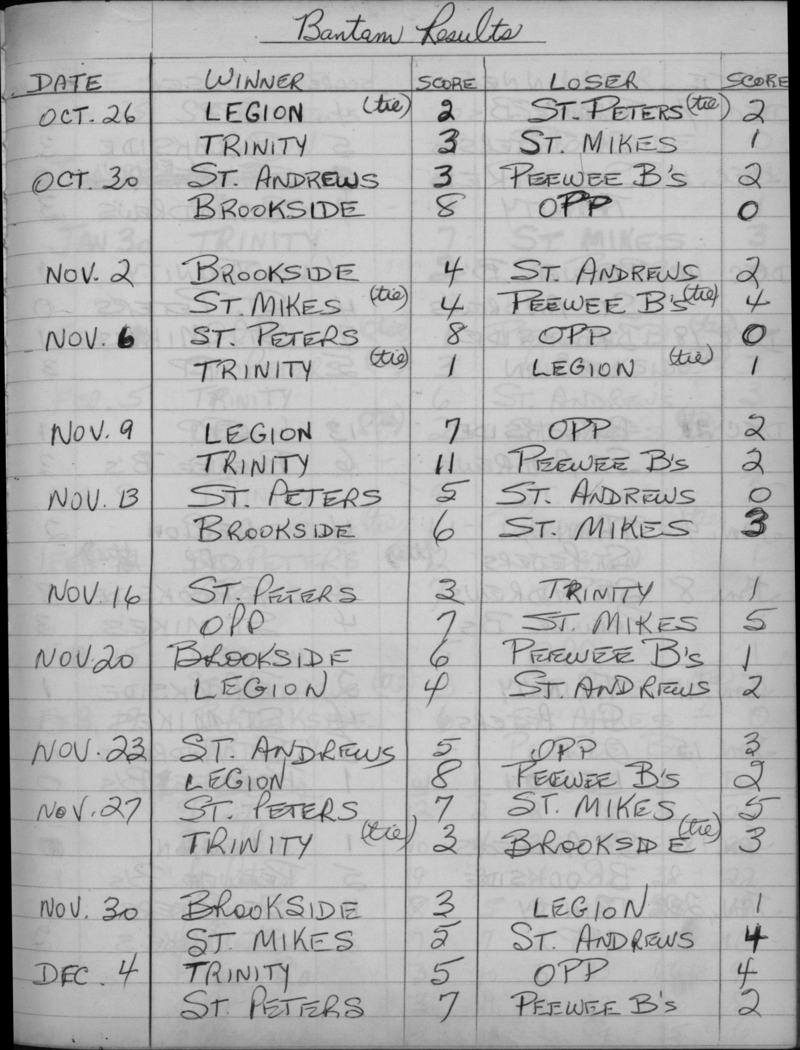 Bantam Results
DATE WINNER SCORE LOSER SCORE
OCT. 26 LEGION (tie) 2 ST. PETERS (tie) 2
TRINITY 3 ST. MIKES 1
OCT. 30 ST. ANDREWS 3 PEEWEE B's 2
BROOKSIDE 8 OPP 0
NOV. 2 BROOKSIDE 4 ST. ANDREWS 2
ST. MIKES (tie) 4 PEEWEE B's (tie) 4
NOV. 6 ST. PETERS 8 OPP 0
TRINITY (tie) 1 LEGION (tie) 1
NOV. 9 LEGION 7 OPP 2
TRINITY 11 PEEWEE B's 2
NOV. 13 ST. PETERS 5 ST. ANDREWS 0
BROOKSIDE 6 ST. MIKES 3
NOV. 16 ST. PETERS 3 TRINITY 1
OPP 7 ST. MIKES 5
NOV. 20 BROOKSIDE 6 PEEWEE B's 1
LEGION 4 ST. ANDREWS 2
NOV. 23 ST. ANDREWS 5 OPP 3
LEGION 8 PEEWEE B's 2
NOV. 27 ST. PETERS 7 ST. MIKES 5
TRINITY (tie) 3 BROOKSIDE (tie) 3
NOV. 30 BROOKSIDE 3 LEGION 1
ST. MIKES 5 ST. ANDREWS 4
DEC. 4 TRINITY 5 OPP 4
ST. PETERS 7 PEEWEE B's 2